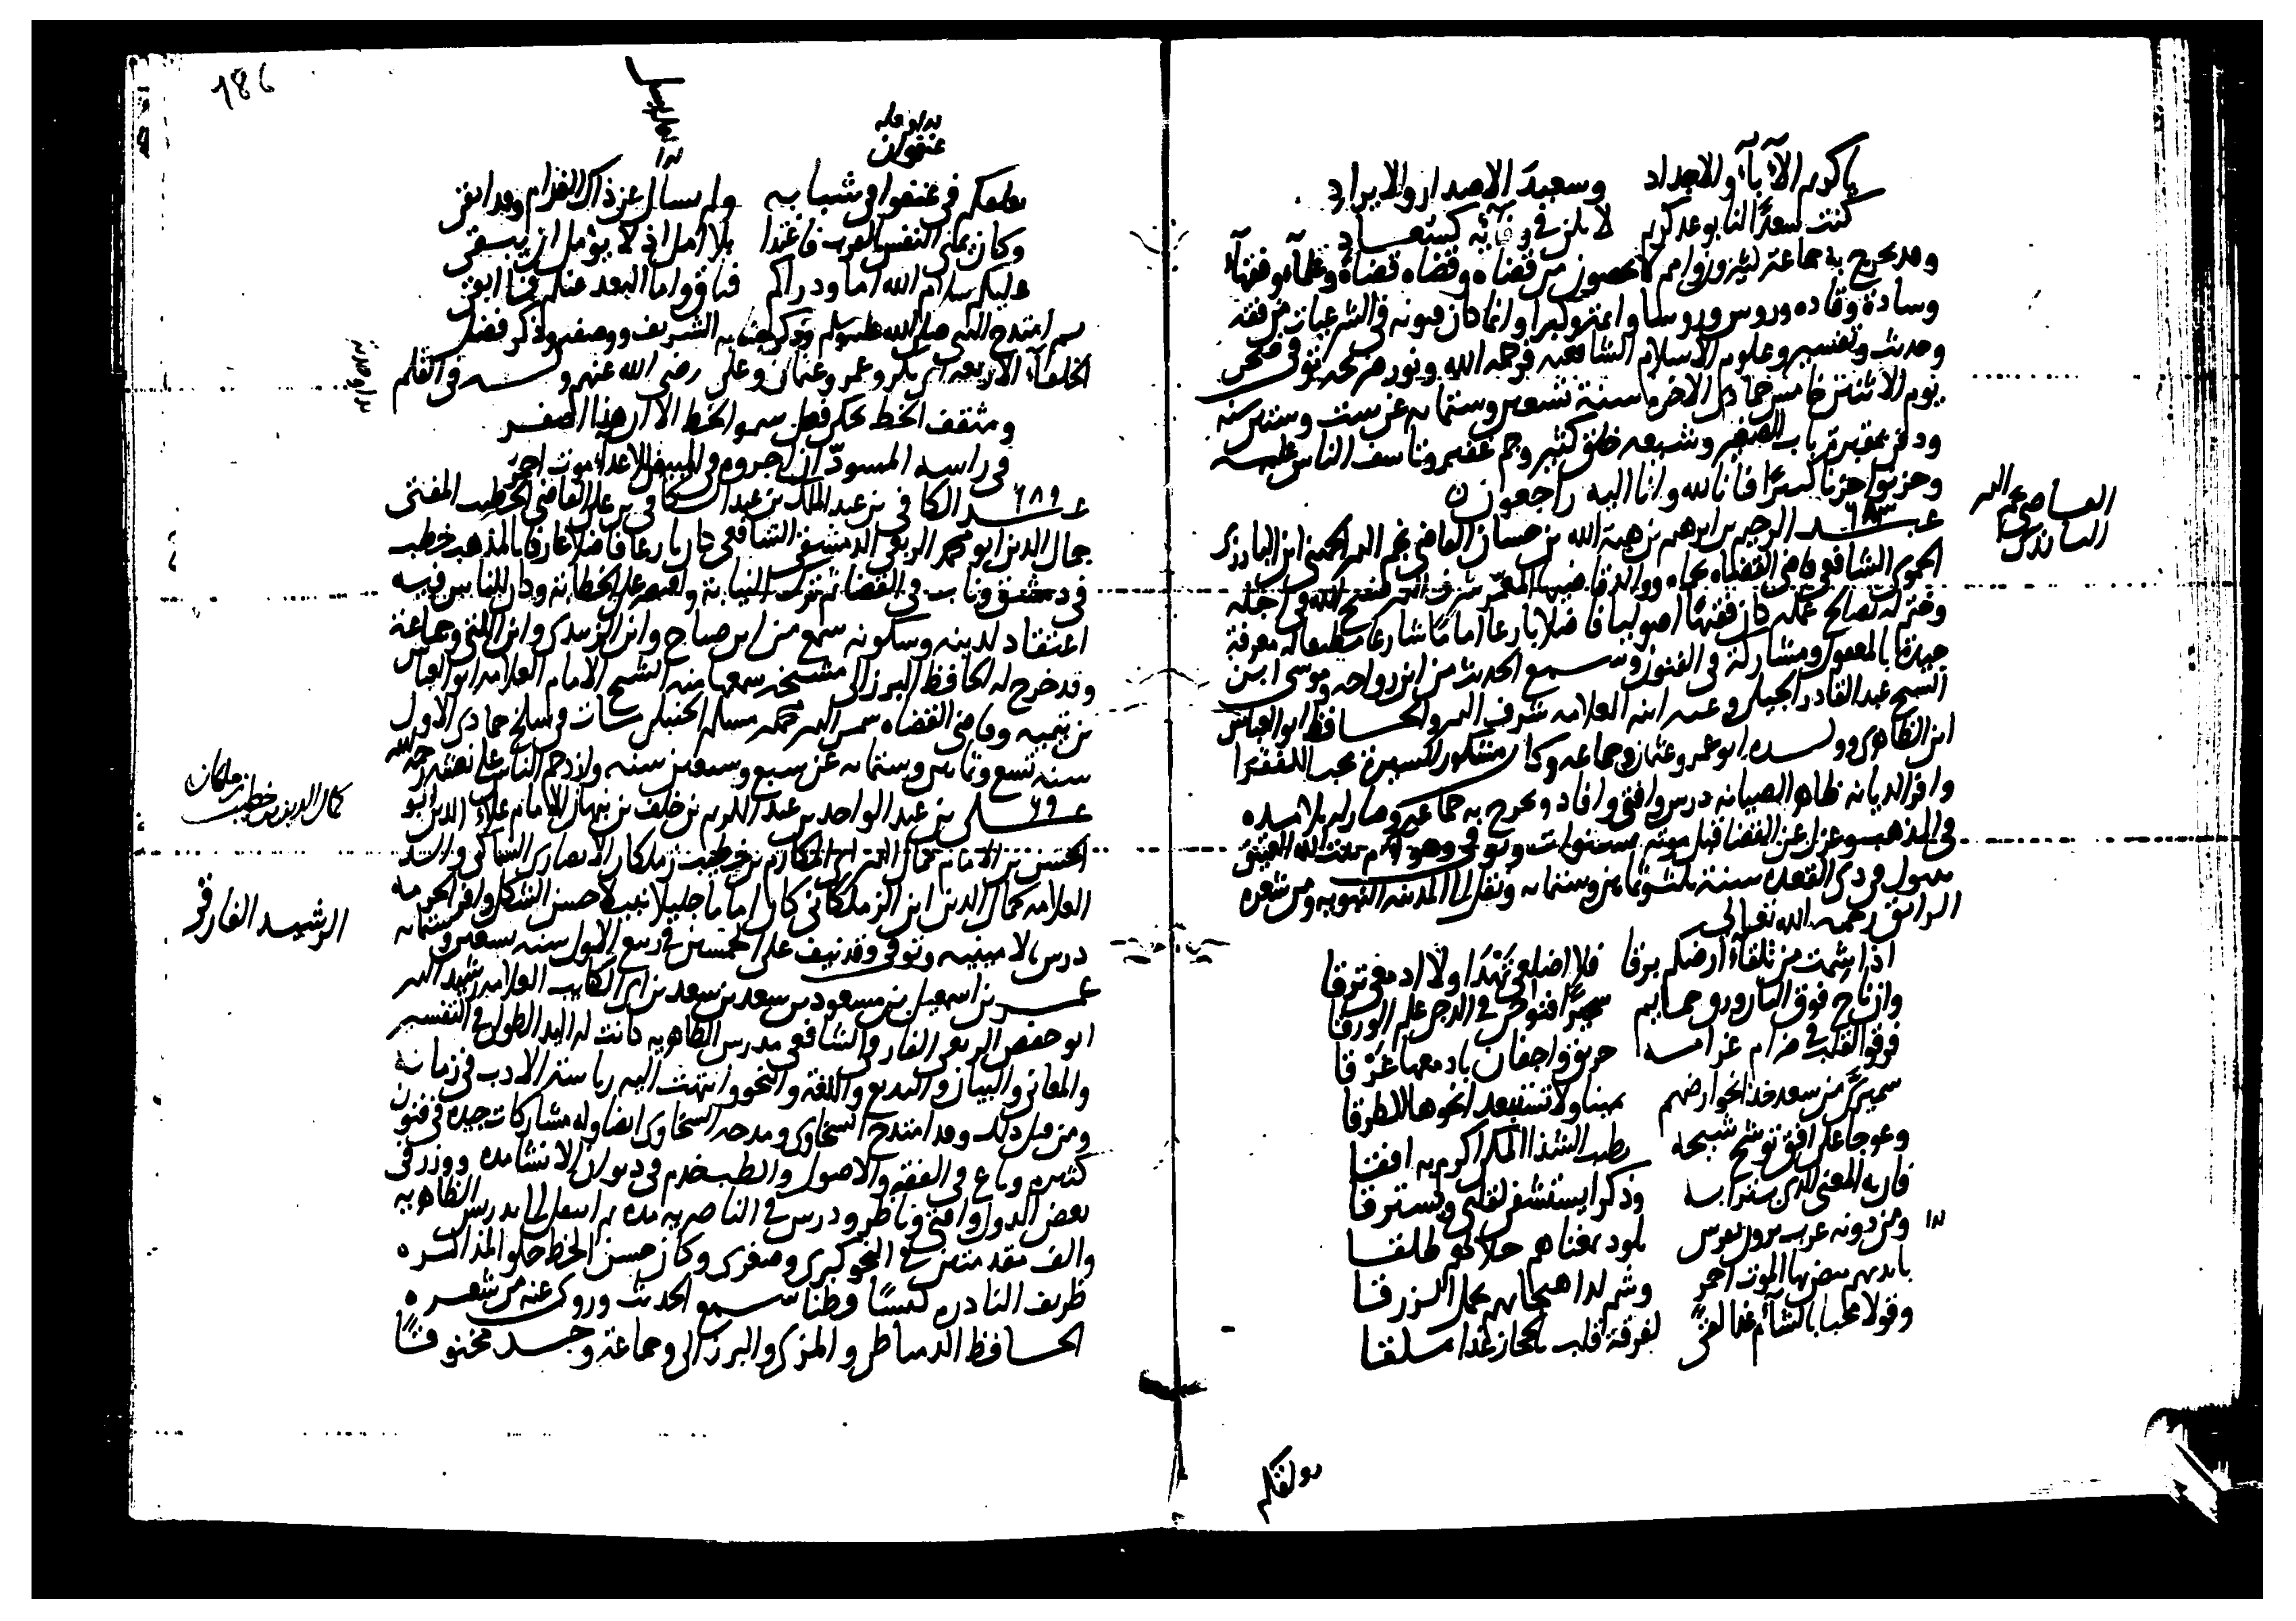 يا كريم الآباء والاجداد وسعيد الاصدار والايراد
كنت سعدًا لنا بوعد كريم لا تكن في وفائه كسعاد
وقد تخرج به جماعة كثيرون وامم لا يحصون من قضاه وقضاه قضاة وعلماء وفقهاء
وسادة وقاده وروس وروسا وائمة وكبرا وانما كان فنونه في الشرعيات من فقه
وحديث وتفسير وعلوم الاسلام الشافعيه فرحمه الله ونور ضريحه توفي ضحى
يوم الاثنين خامس جمادى الاخره سنة تسعين وستمايه عن ست وستين سنه
ودفن بمقبرة باب الصغير وشيعه خلق كثير وجم غفير وتاسف الناس عليه
وحزنوا حزنا كبيرًا فانا لله وانا اليه راجعون
القاضي نجم الدين
البارزي
٦٨٣
عبد الرحيم بن ابرهيم بن هبة الله بن حسان القاضي نجم الدين الجهني ابن البارزي
الحموي الشافعي قاضي القضاه بحماه ووالد قاضيها المعمر شرف الدين فسح الله في اجله
وختم له بصالح عمله كان فقيهًا اصوليا فاضلا بارعا امامًا شاعرا مطبقا له معرفة
جيدة بالمعقول ومشاركة في الفنون وسمع الحديث من ابن رواحه وموسى ابن
الشيخ عبد القادر الجيلي وعنه ابنه العلامه شرف الدين والحافظ ابو العباس
ابن الظاهري وولده ابو عمرو عثمان وجماعه وكان مشكور السيرة محب للفقرا
وافر الديانه ظاهر الصيانه درس وافتى وافاد وتخرج به جماعة وصار له تلامذه
في المذهب وعزل عن القضا قبل موته بسنوات وتوفي وهو ام بيت الله العتيق
بتبوك في ذي القعده سنة ثلث وثمانين وستمايه ونقل الى المدينه النبويه ومن شعره
الرائق رحمه الله تعالى
اذا شمت من تلقاء ارضكم برقا فلا اضلعي تهدا ولا ادمعي ترقا
وان ناح فوق البان ورق حمايم سحيرًا فنوحي في الدجى علم الورقا
فرقوا لقلب في ضرام غرامه حريق واجفان بادمعها غرقا
سميريَّ من سعد خذا نحو ارضهم يمينا ولا تستبعدا نحوها الطرقا
وعوجا على افق توشح شيحه بطيب الشذا المكي اكرم به افقا
فان به المغنى الذي بترابه وذكراه يستشفى لقلبي ويسترقا
ومن دونه عرب يرون نفوس يلوذ بمغناهم حلالا لهم طلقا
بايديهم بيض بها الموت احمر وسمر لدا هيجايهم تحمل الزرقا
وقولا محبا بالشآم غدا لقى لفرقة قلب بالحجاز غدا ملقا
186
تعلقكم في عنفوان شبابه ولم يسل عن ذاك الغرام وقد انقى
وكان يمني النفس بالقرب فاغتدا بلا امل اذ لا يؤمل ان يبقى
عليكم سلام الله اما ودادكم فباق واما البعد عنكم فما ابقى
ثم امتدح النبي صلى الله عليه وسلم وذكر جنابه الشريف ووصفه وذكر فضل
الخلفاء الاربعه ابي بكر وعمر وعثمان وعلي رضي الله عنهم وله في القلم
ومثقف الخط يحكي فعل سمر الخط الا ان هذا اصفر
في راسه المسود ان اجروه في المبيض للاعداء موت احمر
٦٨٩
عبد الكافي بن عبد الملك بن عبد الكافي بن علي القاضي الخطيب المفتي
جمال الدين ابو محمد الربعي الدمشقي الشافعي كان بارعا فاضلا عارفا بالمذهب خطب
في دمشق وناب في القضا ثم ترك النيابة واقتصر على الخطابة وكان للناس فيه
اعتقاد لدينه وسكونه سمع من ابن صباح وابن الزبيدي وابن اللتي وجماعة
وقد خرج له الحافظ البرزالي مشيخه سمعها منه الشيخ الامام العلامه ابو العباس
بن تيميه وقاضي القضاه شمس الدين محمد بن مسلم الحنبلي مات في سلخ جمادى الاول
سنه تسع وثمانين وستمايه عن سبع وسبعين سنه وازدحم الناس على نعشه رحمه الله
كمال الدين بن خطيب زملكان
٦٩٠
علي بن عبد الواحد بن عبد الكريم بن خلف بن نبهان الامام علاء الدين ابو
الحسن بن الامام كمال الدين ابي المكارم بن خطيب زملكان الانصاري السماكي والد
العلامه كمال الدين ابن الزملكاني كان اماما جليلا نبيلا حسن الشكل وافر الحرمه
درس بالامينيه وتوفي وقد نيف على الخمسين في ربيع الاول سنه تسعين وستمايه
الرشيد الفارقي
عمر بن اسمعيل بن مسعود بن سعد بن سعيد بن ابي الكتايب العلامه رشيد الدين
ابو حفص الربعي الفارقي الشافعي مدرس الظاهريه كانت له اليد الطولى في التفسير
والمعاني والبيان والبديع واللغة والنحو وانتهت اليه رياسة الادب في زمانه
ومن قبل ذلك وقد امتدح السخاوي ومدحه السخاوي ايضا وله مشاركات جيده في فنون
كثيره وباع في الفقه والاصول والطب خدم في ديوان الانشا مده ووزر في
بعض الدول وافتى وناظر ودرس في الناصريه مده ثم انتقل الى تدريس الظاهريه
والف مقدمتين في النحو كبرى وصغرى وكان حسن الخط حلو المذاكره
ظريف النادره كيسًا فطنا سمع الحديث وروى عنه من شعره
الحافظ الدمياطي والمزي والبرزالي وجماعة وجد مخنوقًا